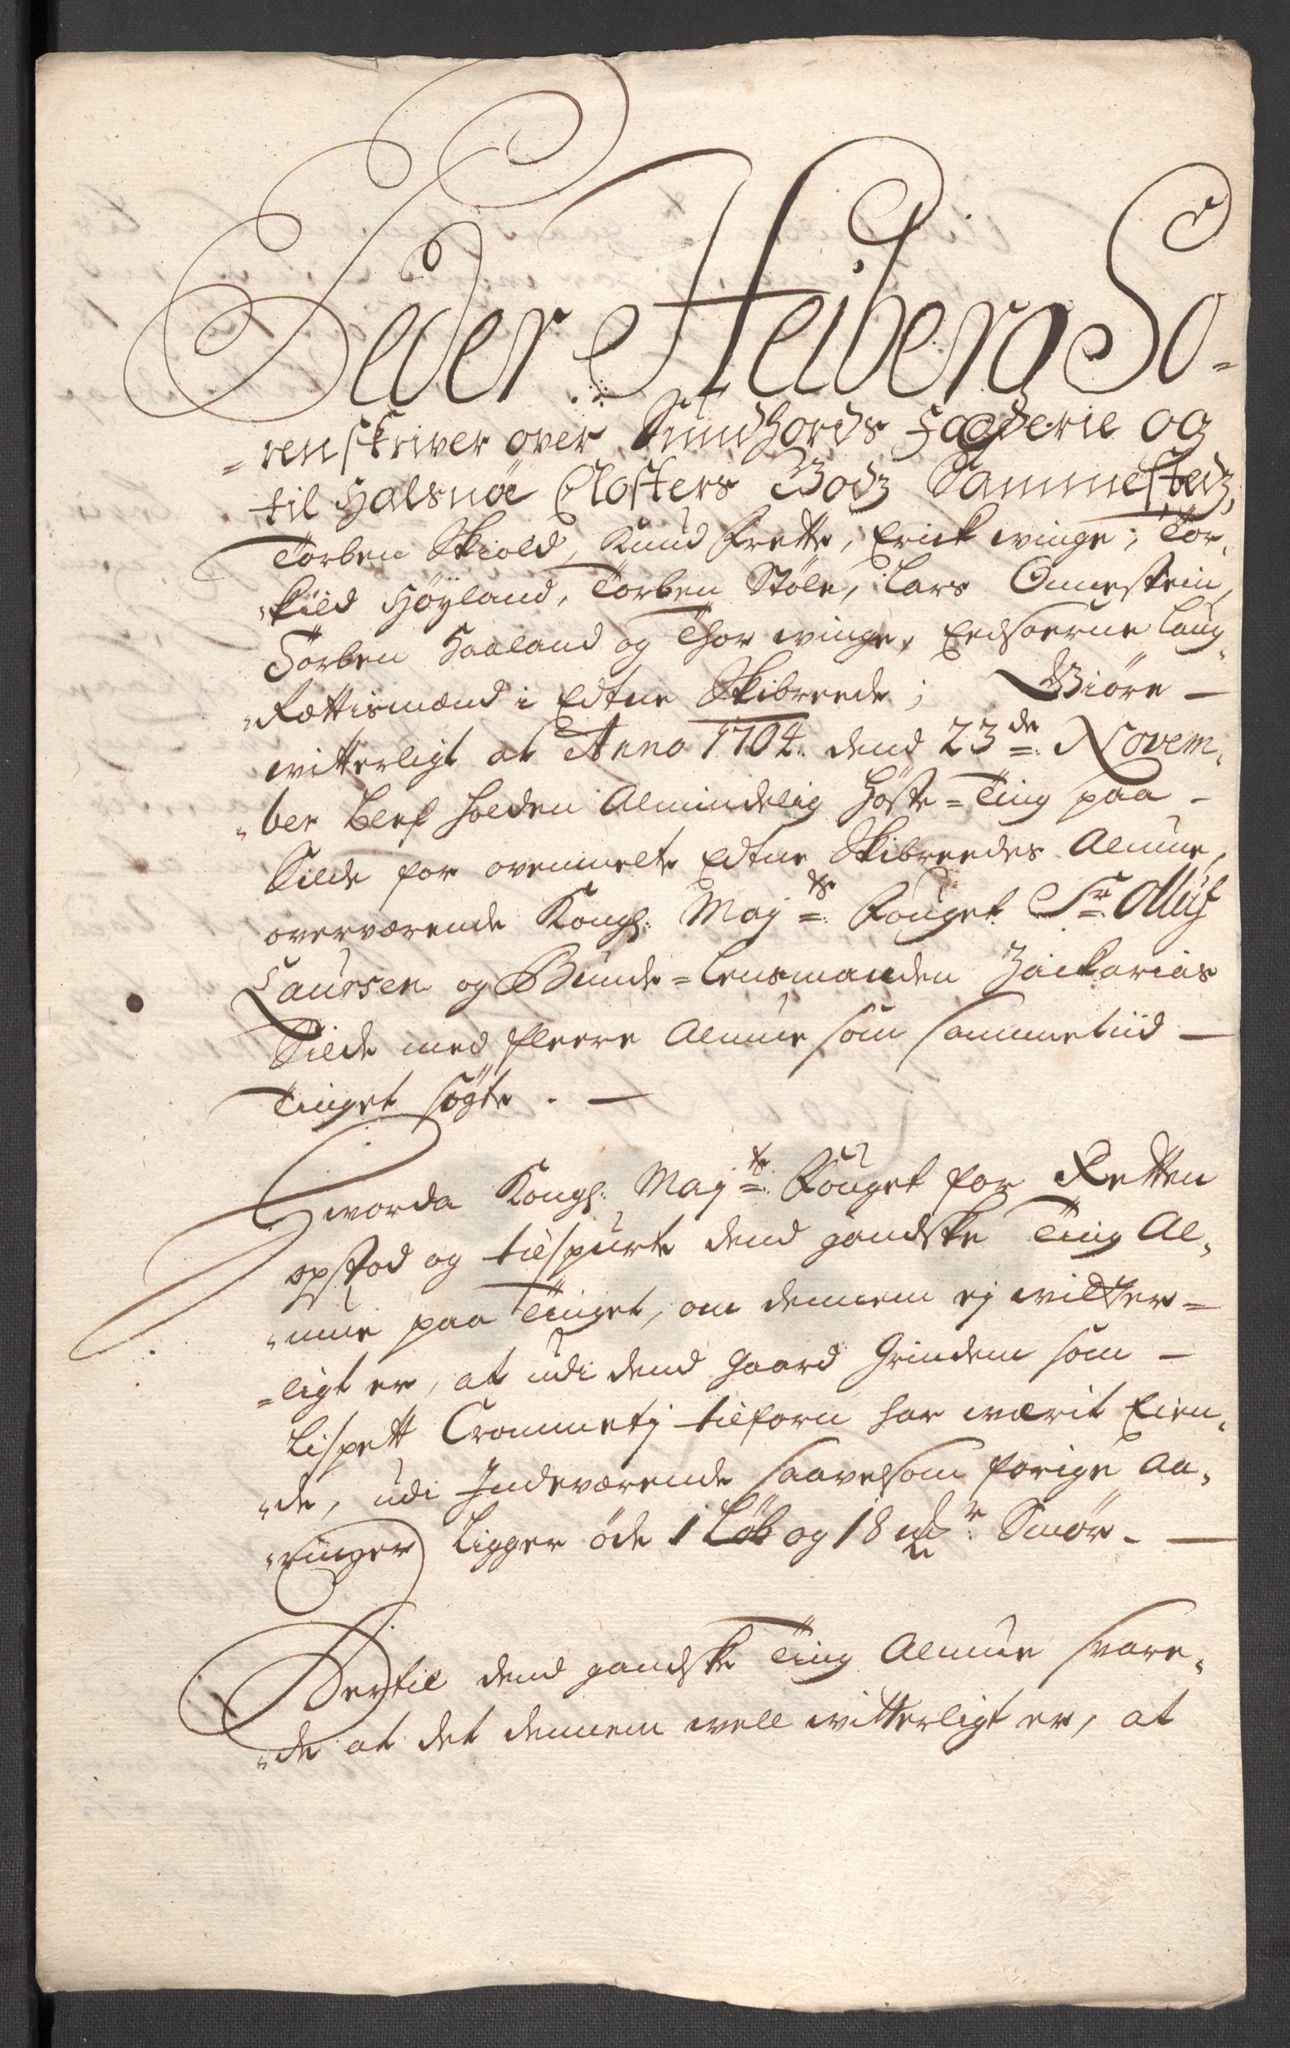 Peder Heiberg So-
-renskriver over Sundhords Fogderie og
til Halsnöe Closters Godz Sammestedz,
Torben Skiold, Knud Frette, Erick winge, Tor-
-kild Höyland, Torben Stöle, Lars Ommestein,
Torben Haaland og Thor winge, Eedsoerne Laug-
-Rettismænd i Edtne Skibreede; Giöre
witterligt at Anno 1704. dend 23de Novem-
-ber blef holden Almindelig Höste-Ting paa
Silde for ovenmelte Edtne Skibreedes Almue,
overværende Kongl. Mayts Fouget Sr Olluf
Laursen og Bunde-Lensmanden Zackarias
Silde med fleere Almue som sammetiid
Tinget sögte.
Hvorda Kongl. Mayts Fouget for Retten
opstod og tilspurte dend gandske Ting Al-
-mue paa Tinget, om dennem ej witter-
-ligt er, at udi dend gaard Grindem som
Lispett Crommetj tilforn har wærit Eien-
-de, udi Indeværende saavelsom forige Aa-
-ringer Ligger öde 1 Löb og 18 mkr Smör.
Dertil dend gandske Ting Almue svare-
-de at det dennem well witterligt er, at